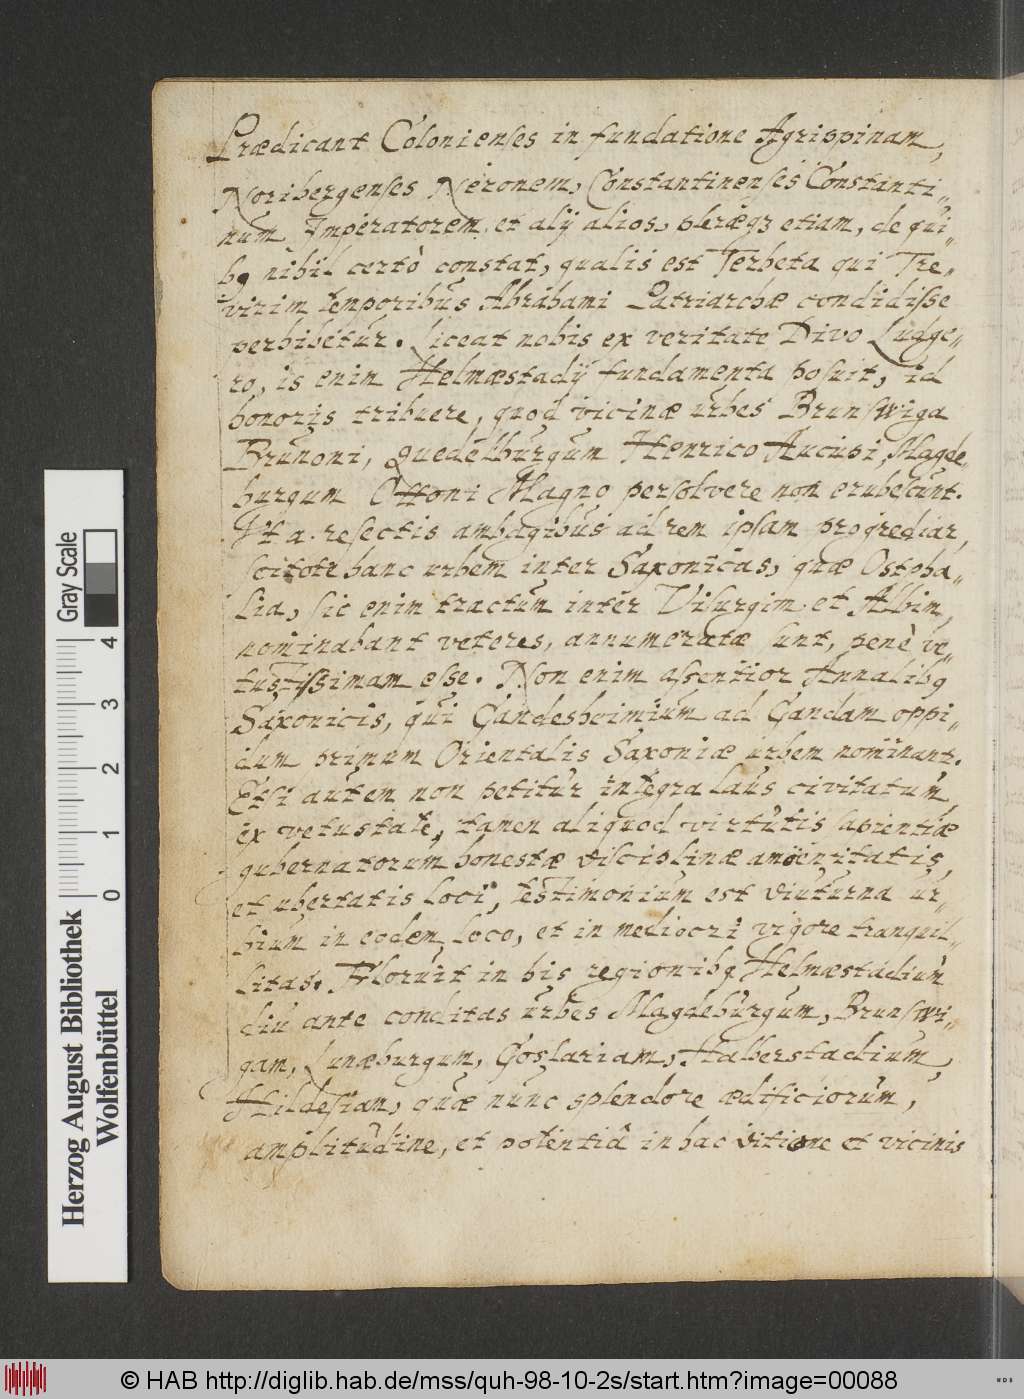 Prædicant Colonienses in fundatione Agrippinam,
Noribergenses Neronem, Constantinenses Constanti„
num Imperatorem, et alÿ alios, pleræqꝫ etiam, de qui„
bꝯ nihil certò constat, qualis est Terbeta qui Tre„
virim temporibus Abrahami Patriarchæ condidisse
perhibetur. Liceat nobis ex veritate Divo Ludge„
ro, is enim Helmæstadÿ fundamenta posuit, id
honoris tribuere, quod vicinæ urbes Brunswiga
Brunoni, Quedelburgum Henrico Aucupi, Magde„
burgum Ottoni Magno persolvere non erubescunt.
Vt a. resectis ambagibus ad rem ipsam progrediar,
scitote hanc urbem inter Saxonicas, quæ Ostpha„
lia, sic enim tractum inter Visurgim et Albim,
nominabant veteres, annumeratæ sunt, penè ve„
tustissimam esse. Non enim assentior Annalibꝯ
Saxonicis, qui Gandesheimium ad Gandam oppi„
dum primum Orientalis Saxoniæ urbem nominant.
Etsi autem non petitur integra laus civitatum
ex vetustate, tamen aliquod virtutis sapientiæ
gubernatorum honestæ disciplinæ amœnitatis,
et ubertatis loci, testimonium est diuturna ur„
bium in eodem loco, et in mediocri vigore tranquil„
litas. Floruit in his regionibꝯ Helmæstadium
diu ante conditas urbes Magdeburgum, Brunswi„
gam, Lunæburgum, Goslariam, Halberstadium,
Hildesian, quæ nunc splendore ædificiorum,
amplitudine, et potentiâ in hac ditione et vicinis
Herzog August Bibliothek
Wolfenbüttel
Gray Scale
0 1 2 3 4
© HAB http://diglib.hab.de/mss/quh-98-10-2s/start.htm?image=00088